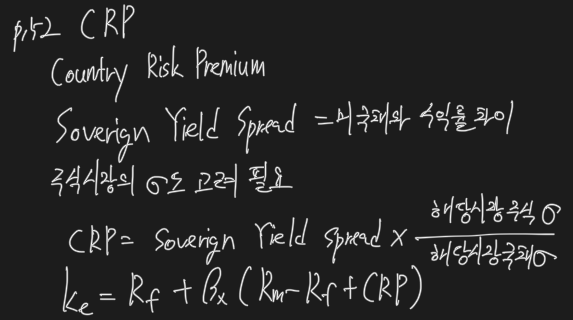 p.52 CRP
Country Risk Premium
Soverign Yield Spread = 미국채와 수익률 차이
주식시장의 σ도 고려 필요
CRP = Soverign Yield spread × 해당시장 주식 σ / 해당시장 국채 σ
ke = Rf + βx (Rm - Rf + CRP)